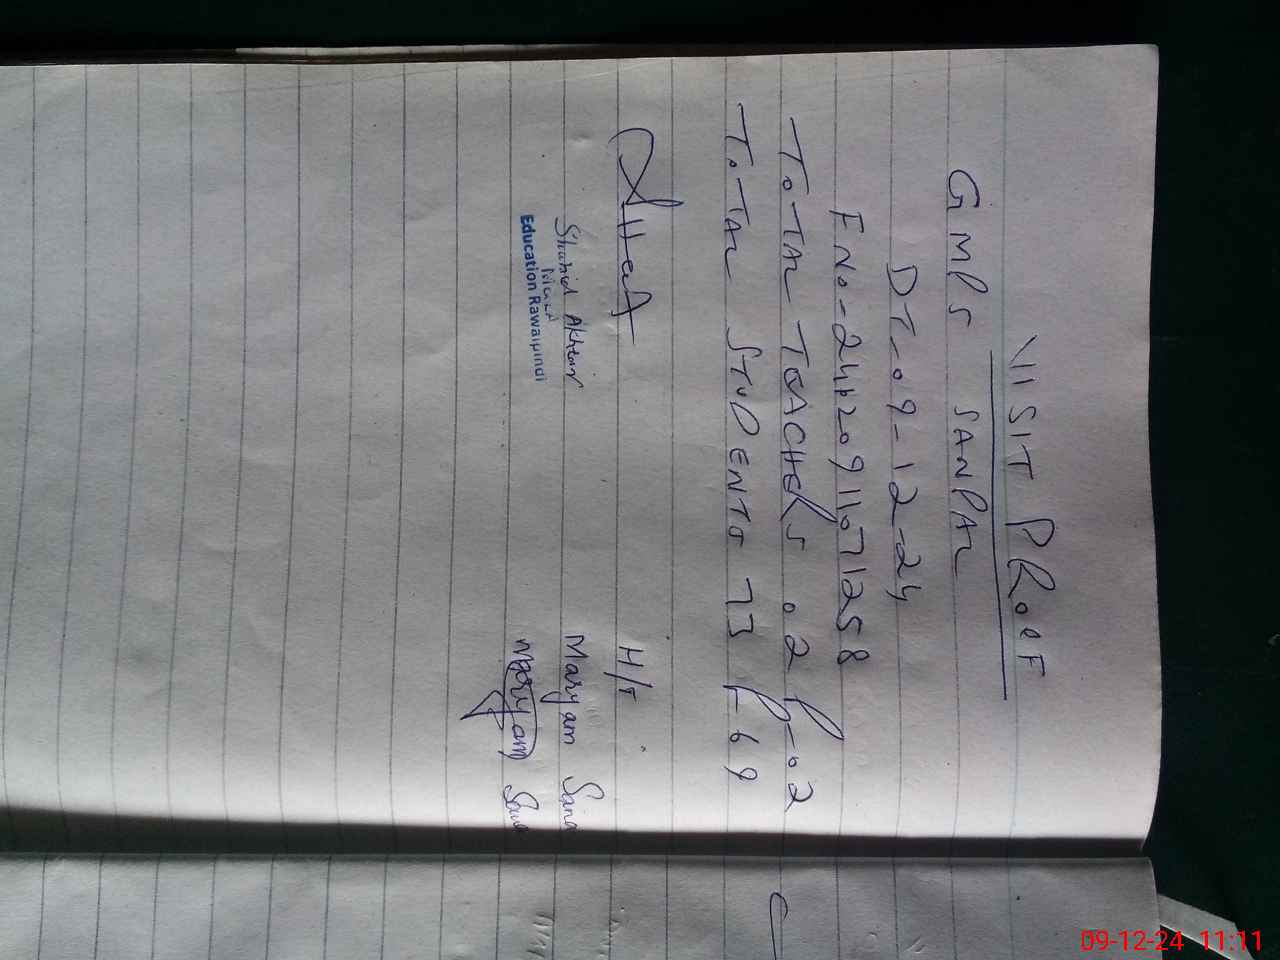 VISIT PROOF
GMPS SANPAL
DT-09-12-24
F No-24120911071258
TOTAL TEACHERS 02 P-02
TOTAL STUDENTS 73 P-69
H/T
Shahid Akhtar
Maryam Sana
Maryam Sana
Education Rawalpindi
09-12-24 11:11